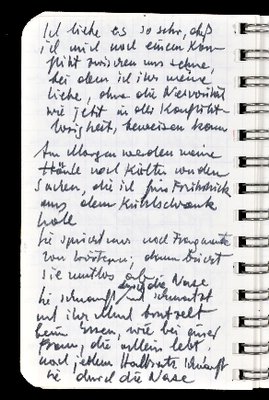 Ich liebe es so sehr, daß
ich mich nach einem Kon-
flikt zwischen uns sehne,
bei dem ich ihr meine
Liebe, ohne die Nervosität
wie jetzt in der Konflikt-
losigkeit, beweisen kann
Am Morgen werden meine
Hände nach Kälte von den
Sachen, die ich fürs Frühstück
aus dem Kühlschrank
hole
Sie spricht nur noch Fragmente
von Wörtern, dann bricht
sie mutlos ab
Sie schnauft durch die Nase und schmatzt
und ihr Mund
beim Essen, wie bei einer
Frau, die allein lebt
nach jedem Halbsatz schnauft
sie durch die Nase